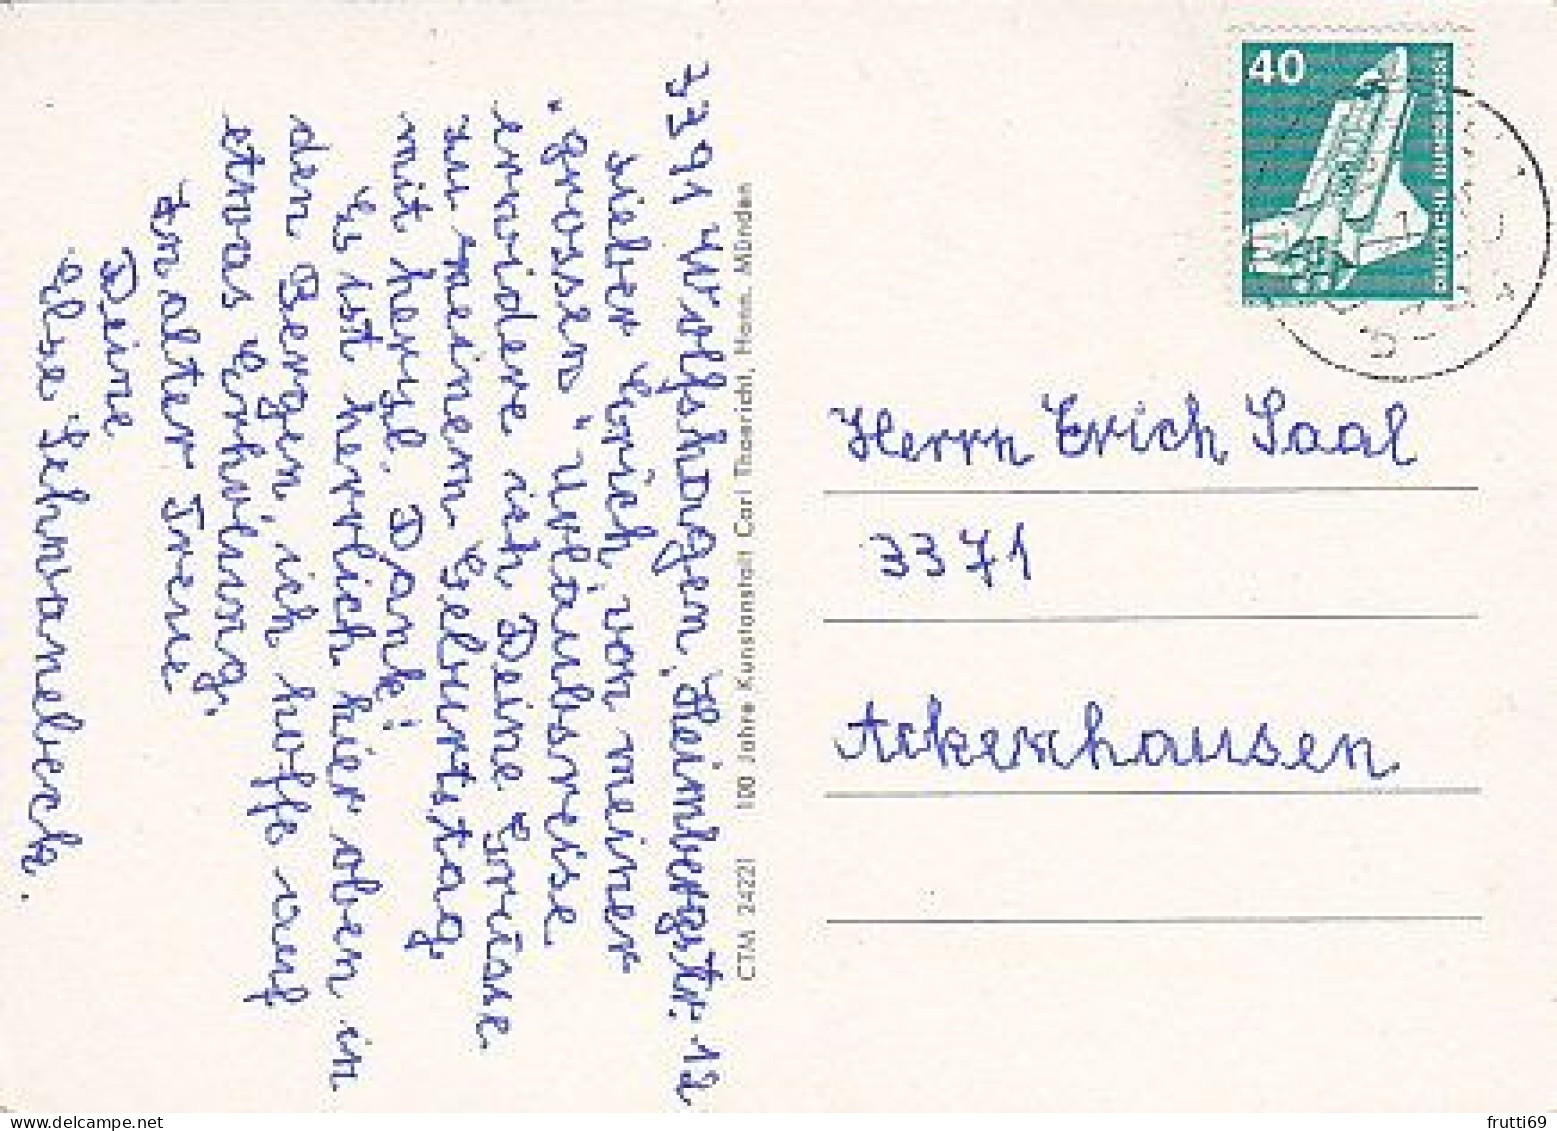 3391 Wolfshagen, Heimbergstr. 12
Lieber Erich, von meiner
"grossen" Urlaubsreise
erwidere ich Deine Grüsse
zu meinem Geburtstag
mit herzl. Dank!
Es ist herrlich hier oben in
den Bergen, ich hoffe auf
etwas Erholung.
In alter Treue
Deine
Else Schwanebeck.
CTM 24221 100 Jahre Kunstanstalt Carl Thoericht, Hann. Münden
40
DEUTSCHE BUNDESPOST
Herrn Erich Saal
3371
Ackerhausen
frutti69